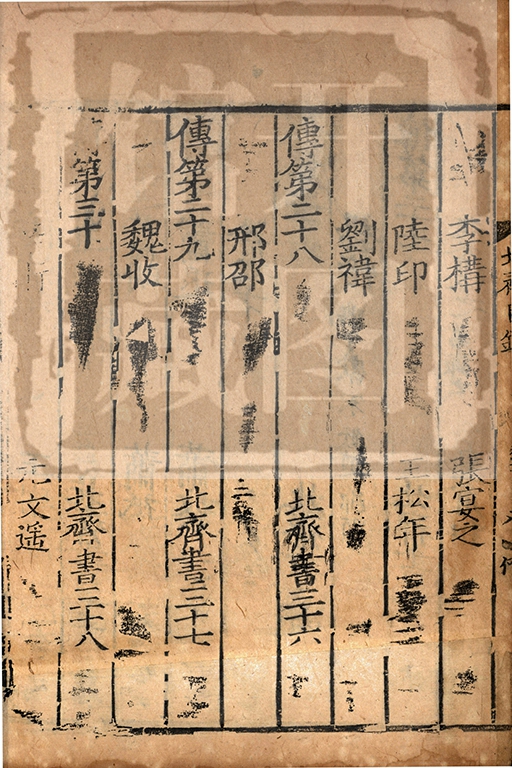 李構 張宴之
陸印 王松年
劉禕
傳第二十八 北齊書三十六
邢邵
傳第二十九 北齊書三十七
魏收
第三十 北齊書三十八
元文遥